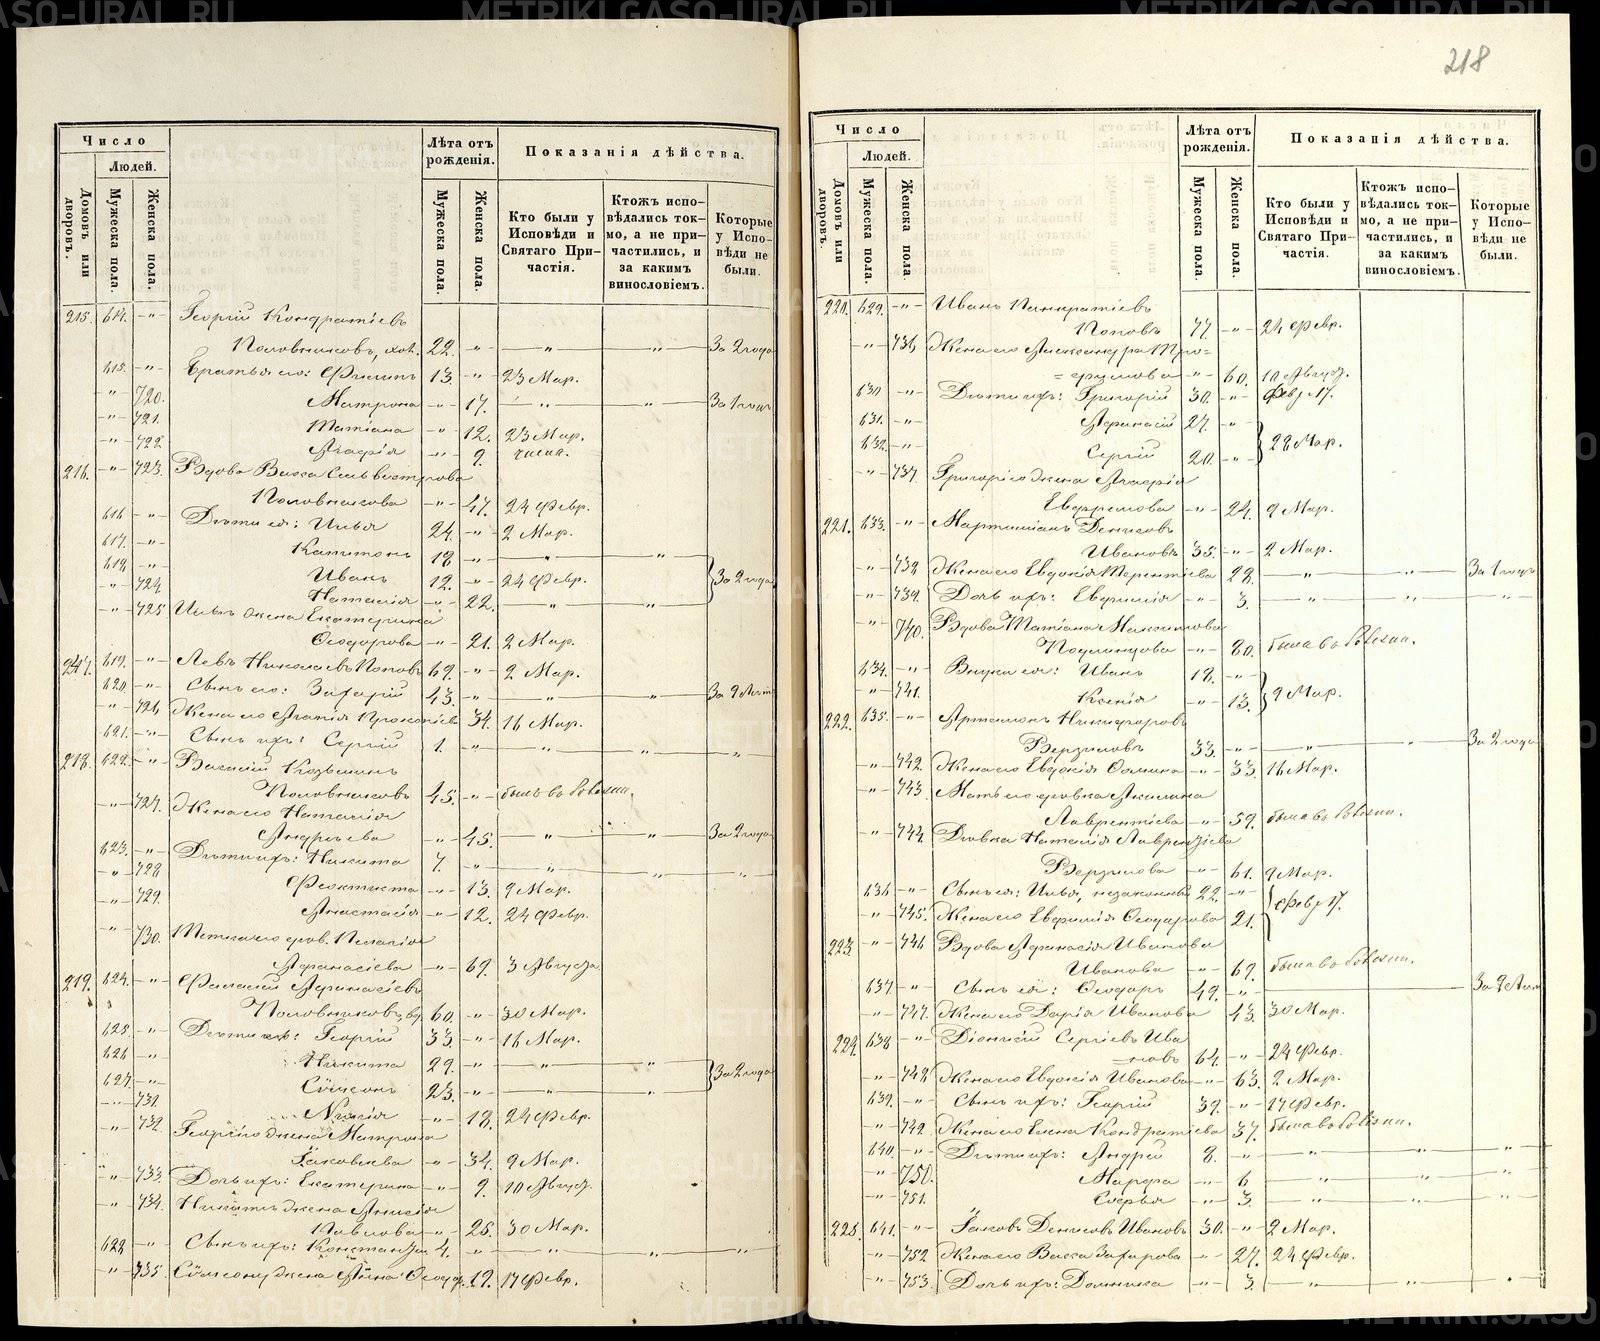 218
Число
Людей.
Домовъ или дворовъ.
Мужеска пола.
Женска пола.
Лѣта отъ рожденія.
Мужеска пола.
Женска пола.
Показанія дѣйства.
Кто были у Исповѣди и Святаго При-частія.
Ктожъ испо-вѣдались ток-мо, а не при-частились, и за какимъ винословіемъ.
Которые у Испо-вѣди не были.
215. 614. -"- Георгій Кондратіевъ
Половниковъ, 22. -"- -"- " За 2 года
615. -"- Братья его: Филипъ 13. -"- 23 Мар.
-"- 720. Матрона -"- 17. -"- " За 1 годъ
-"- 721. Татіана -"- 12. 23 Мар.
-"- 722 Агафія -"- 9. числа.
216. -"- 723. Вдова Васса Сильвестрова
Половникова -"- 47. 24 Февр.
616 -"- Дѣти ея: Илья 24. -"- 2 Мар.
617. -"- Капитонъ 18 -"- " "
618. -"- Иванъ 12. -"- 24 Февр. За 2 года
-"- 724 Наталія -"- 22. " "
-"- 725 Ильи жена Екатерина
Ѳеодорова -"- 21. 2 Мар.
217. 619. -"- Левъ Николаевъ Поповъ 69. -"- 2 Мар.
620 -"- Сынъ его: Захарій 43. -"- " " За 9 лѣт
-"- 726 Жена его Агафія Прокопіева 34. 16 Мар.
621. -"- Сынъ ихъ: Сергій 1. -"- " " "
218. 622. -"- Василій Козьминъ
Половниковъ 45. -"- былъ въ болезни.
-"- 727. Жена его Наталія
Андреева -"- 45. " " За 2 года
623. -"- Дѣти ихъ: Никита 7. -"- " " "
-"- 728 Феоктиста -"- 13. 9 Мар.
-"- 729. Анастасія -"- 12. 24 Февр.
-"- 730. Тетка его Пелагія
Афанасіева -"- 69. 3 Августа
219. 624. -"- Фалалей Афанасіевъ
Половниковъ, вд. 60. -"- 30 Мар.
625. -"- Дѣти его: Георгій 33. -"- 16 Мар.
626 -"- Никита 29. -"- " "
627. -"- Сѵмеонъ 23. -"- " " За 2 года
-"- 731 -"- 18. 24 Февр.
-"- 732. Георгія жена Матрона
Іаковлева -"- 34. 9 Мар.
-"- 733. Дочь ихъ: Екатерина -"- 9. 10 Август.
-"- 734. Никиты жена Анисія
Павлова -"- 25. 30 Мар.
628 -"- Сынъ ихъ: Константин 4. -"- " " "
-"- 735. Сѵмеона жена Анна Ѳеодор. 19. 17 Февр.
Число
Людей.
Домовъ или дворовъ.
Мужеска пола.
Женска пола.
Лѣта отъ рожденія.
Мужеска пола.
Женска пола.
Показанія дѣйства.
Кто были у Исповѣди и Святаго При-частія.
Ктожъ испо-вѣдались ток-мо, а не при-частились, и за какимъ винословіемъ.
Которые у Испо-вѣди не были.
220. 629. -"- Иванъ Панкратіевъ
Поповъ 77. -"- 24 Февр.
-"- 736 Жена его Александра Тро=
=фимова -"- 60. 10 Август.
630 -"- Дѣти ихъ: Григорій 30. -"- Февр 17.
631. -"- Афанасій 27. -"-
632. -"- Сергій 20. -"- 28 Мар.
-"- 737. Григорія жена Агафія
Евфремова -"- 24. 9 Мар.
221. 633. -"- Мартиніанъ Денисовъ
Ивановъ 35. -"- 2 Мар.
-"- 738 Жена его Евдокія Терентіева 28. " " За 1 годъ
-"- 739. Дочь ихъ: Евфимія -"- 3. " " "
-"- 740. Вдова Татіана Максимова
-"- 80. была въ болезни.
634. -"- Внуки ея: Иванъ 18. -"-
-"- 741. Ксенія -"- 13. 9 Мар.
222. 635. -"- Артемонъ Никифоровъ
Верзиловъ 33. -"- " " За 2 года
-"- 742. Жена его Евдокія Фомина -"- 33. 16 Мар.
-"- 743. Мать его вдовка Акилина
Лаврентіева -"- 59. была въ болезни.
-"- 744. Дѣвка Наталія Лаврентіева
Верзилова -"- 61. 9 Мар.
636 -"- Сынъ ея: Илья, незаконный 22. -"-
-"- 745. Жена его Евфимія Ѳеодорова 21. Февр 17.
223. -"- 746 Вдова Афанасія Иванова
Иванова -"- 69. была въ болезни.
637. -"- Сынъ ея: Ѳеодоръ 49. -"- За 9 лѣт
-"- 747. Жена его Дарія Иванова 43. 30 Мар.
224. 638 -"- Діонисій Сергіевъ Ива
=новъ 64. -"- 24 Февр.
-"- 748 Жена его Евдокія Иванова -"- 63. 2 Мар.
639. -"- Сынъ ихъ: Георгій 39. -"- 17 Февр.
-"- 749. Жена его Елена Кондратіева 37. была въ болезни.
640. -"- Дѣти ихъ: Андрей 8. -"- " " "
-"- 750. Марфа -"- 6 " " "
-"- 751. Софья -"- 3. " " "
225. 641. -"- Іаковъ Денисовъ Ивановъ 30. -"- 2 Мар.
-"- 752 Жена его Васса Захарова -"- 27. 24 Февр.
-"- 753. Дочь ихъ: Домника -"- 3. " " "
METRIKI.GASO-URAL.RU